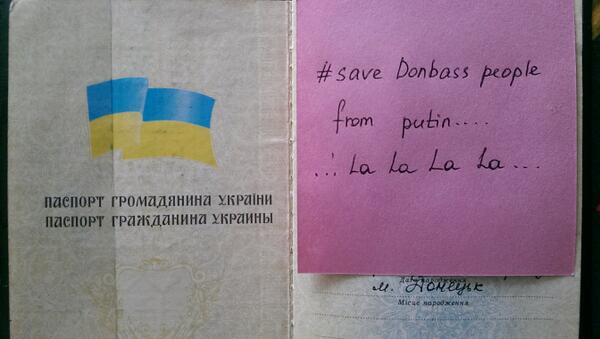 ПАСПОРТ ГРОМАДЯНИНА УКРАЇНИ
ПАСПОРТ ГРАЖДАНИНА УКРАИНЫ
#save Donbass people
from putin....
...La La La La...
Дата народження
м. Донецьк
Місце народження